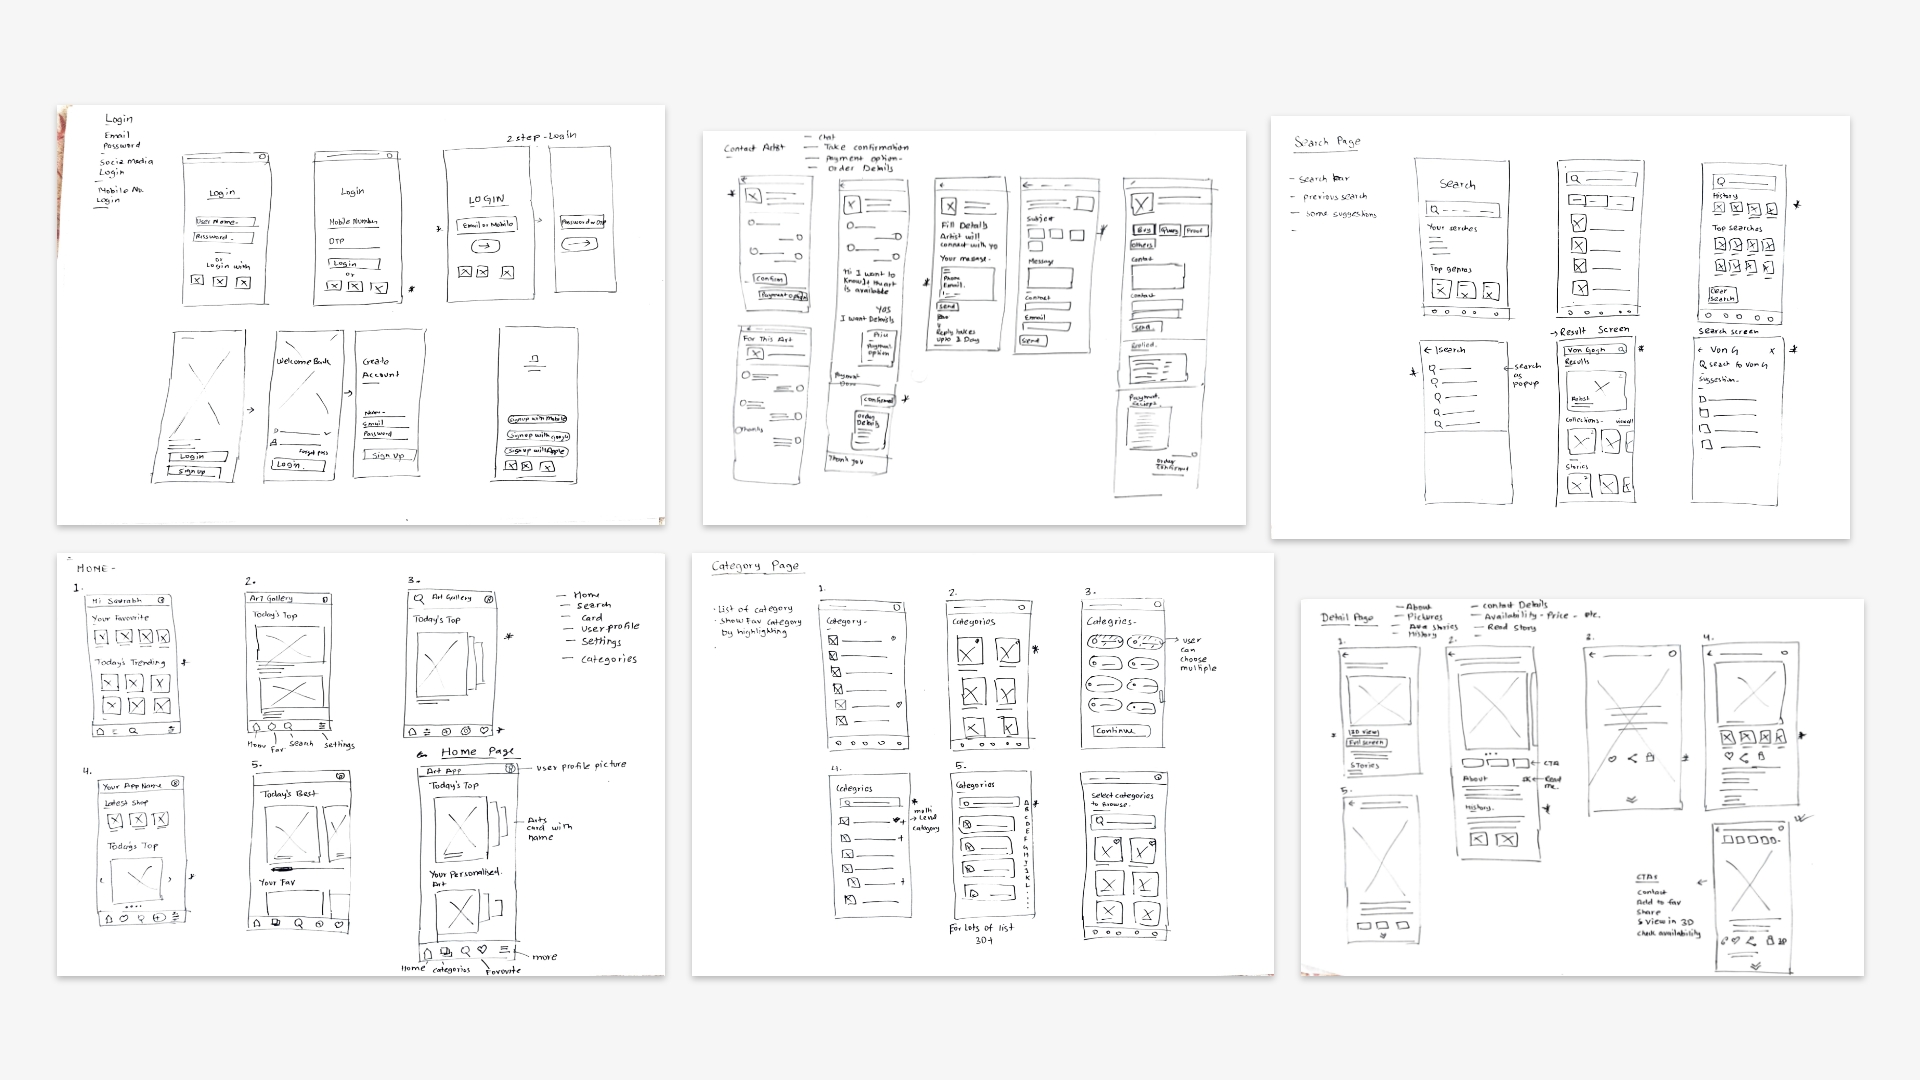 Login
Email
Password
Social Media
Login
Mobile No.
Login
2 step - Login
Login
User Name -
Password -
or
Login with
Login
Mobile Number
OTP
Login
or
LOGIN
Email or Mobile
Password or OTP
Login
Sign up
Welcome Back
Forgot pass
Login
Create
Account
Name -
Email
Password
Sign Up
Sign up with Mobile
Sign up with google
Sign up with Apple
Contact Artist
— Chat
— Take confirmation
— payment option -
— Order Details
Confirm
Payment option
For This Art
Thanks
Hi I want to
know if the art
is available
Yes
I want Details
Payment
option
Payment
Done
Confirmed
Order
Details
Thank you
Fill Details
Artist will
connect with yo
Your message.
Phone
Email.
Send
Reply takes
upto 1 Day
Subject
Message
Contact
Email
Send
Buy
Query
Others
Contact
Send
Payment
Order
Confirmed
Search Page
- search bar
- previous search
- some suggestions
-
Search
Your serches
Top genres
History
Top searches
Clear
Search
→ Result Screen
Search screen
← |search
← search
as
popup
Van Gogh
Results
Artist
Collections -
viewall
Stories
← Von G x
Q seach to Von G
Suggestion -
HOME -
1.
Hi Saurabh
Your Favourite
Today's Trending
2.
Art Gallery
Today's Top
Home
Fav
Search
settings
3.
Art Gallery
Today's Top
— Home
— Search
— Card
— User profile
— Settings
— categories
4.
Your App Name
Latest Shop
Today's Top
5.
Today's Best
Your Fav
Home Page
Art App
user profile picture
Today's Top
Arts
card with
name
Your Personalised.
Art
more
Home
categories
Favorite
Category Page
· List of category
· Show Fav category
by highlighting
1.
Category -
2.
Categories
3.
Categries -
Continue
user
can
choose
multiple
4.
Categries
multi
→ Level
category
5.
Categories
A
B
C
D
E
F
G
H
I
J
K
L
For Lots of list
30+
Select categories
to Browse.
Detail Page
— About
— Pictures
— Ava stories
— History
— Contact Details
— Availability - Price - etc.
— Read Story
1.
3D view
Full screen
Stories
2.
← CTA
About
Read
me.
History.
3.
4.
5.
CTAs
Contact
Add to fav
Share
& view in 3D
Check availability
3D